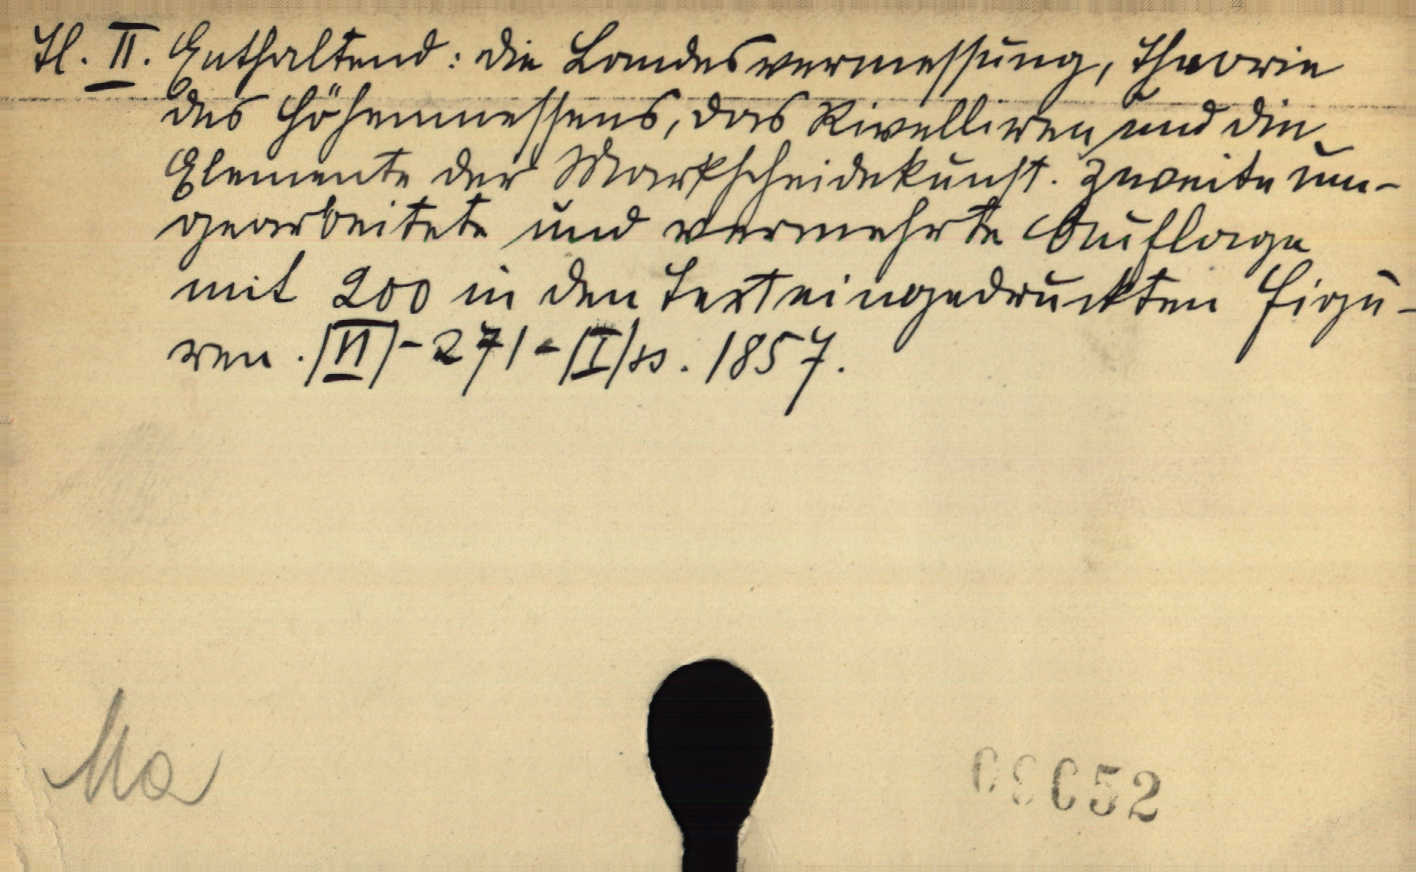 Tl. II. Enthaltend: die Landesvermessung, Theorie
des Höhenmessens, das Nivelliren und die
Elemente der Markscheidekunst. Zweite um-
gearbeitete und vermehrte Auflage
mit 200 in den Text eingedruckten Figu-
ren. |VI|-271-|I| ss. 1857.
Ma
52